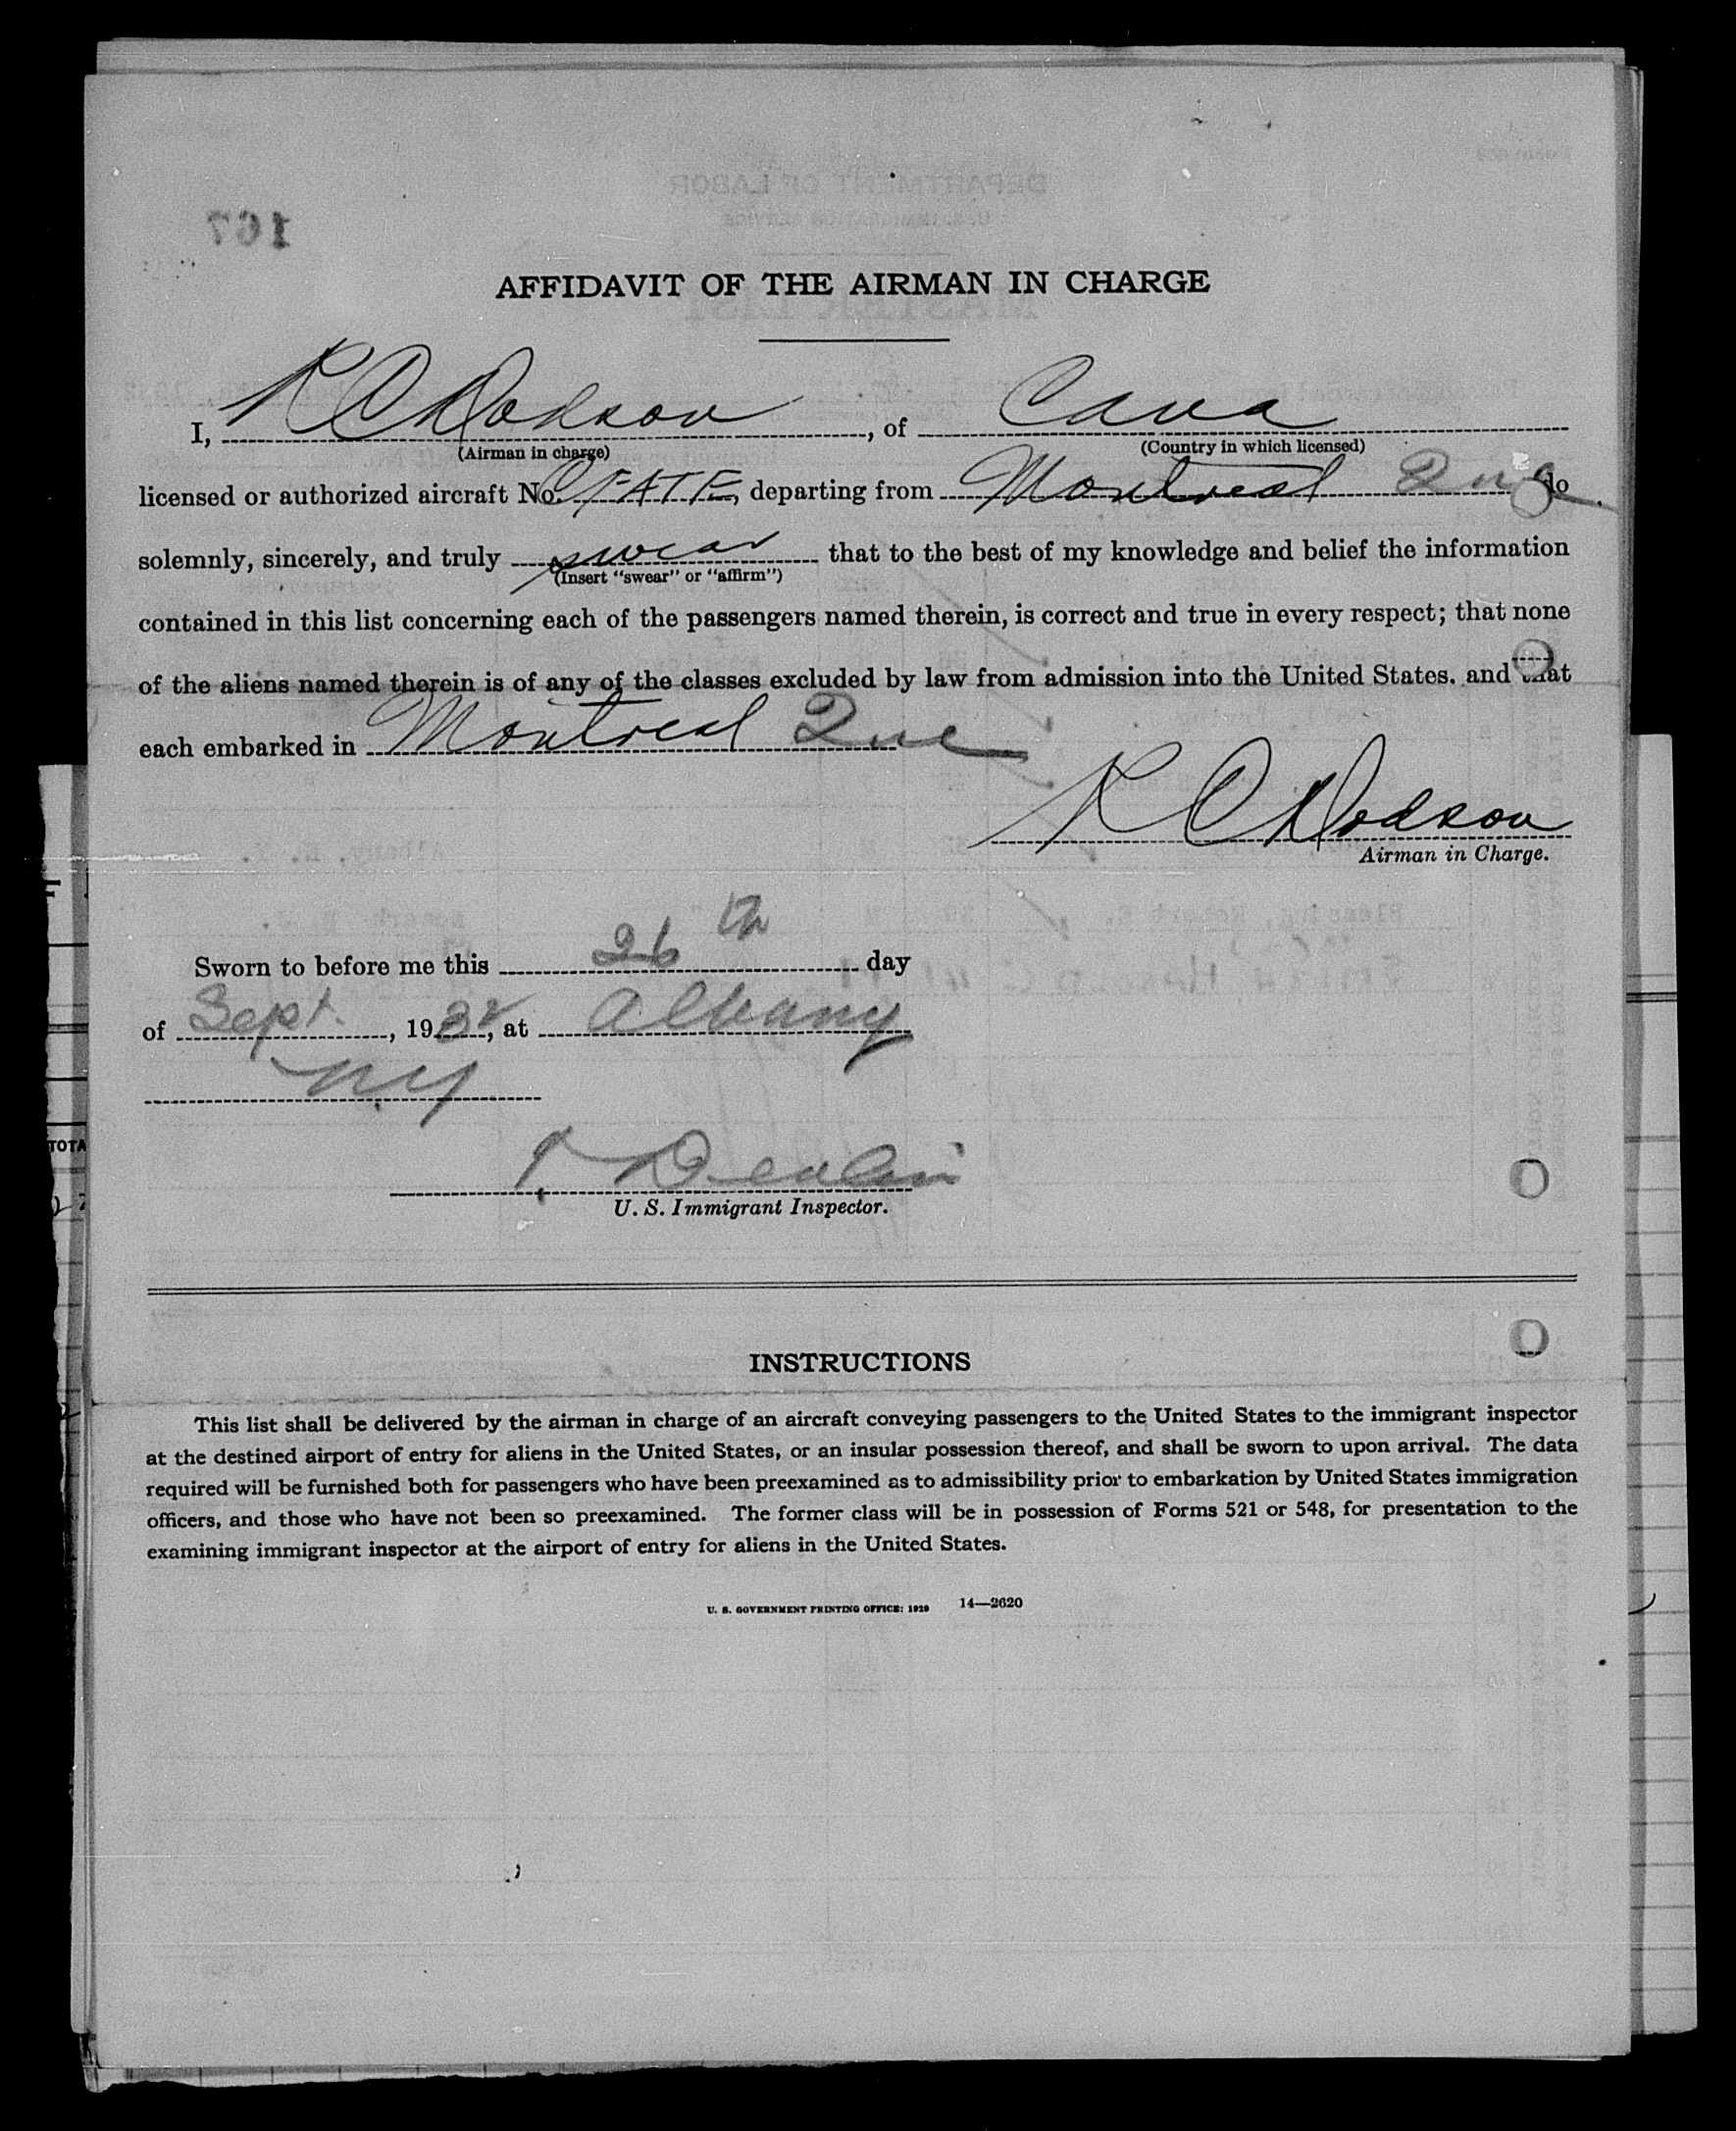 AFFIDAVIT OF THE AIRMAN IN CHARGE
I, R C Dodson, of Cana
(Airman in charge) (Country in which licensed)
licensed or authorized aircraft No. CFATE, departing from Montreal Que do
solemnly, sincerely, and truly swear that to the best of my knowledge and belief the information
(Insert "swear" or "affirm")
contained in this list concerning each of the passengers named therein, is correct and true in every respect; that none
of the aliens named therein is of any of the classes excluded by law from admission into the United States. and that
each embarked in Montreal Que
R C Dodson
Airman in Charge.
Sworn to before me this 26th day
of Sept., 1932, at Albany
N.Y
Devlin
U. S. Immigrant Inspector.
INSTRUCTIONS
This list shall be delivered by the airman in charge of an aircraft conveying passengers to the United States to the immigrant inspector
at the destined airport of entry for aliens in the United States, or an insular possession thereof, and shall be sworn to upon arrival. The data
required will be furnished both for passengers who have been preexamined as to admissibility prior to embarkation by United States immigration
officers, and those who have not been so preexamined. The former class will be in possession of Forms 521 or 548, for presentation to the
examining immigrant inspector at the airport of entry for aliens in the United States.
U. S. GOVERNMENT PRINTING OFFICE: 1929 14—2620